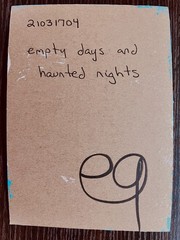 21031704
empty days and
haunted nights
eg